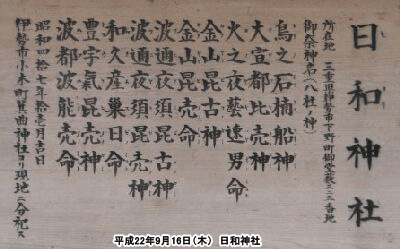 日和神社
所在地 三重県伊勢市下野町御堂薮三二三番地
御祭神名(八柱ノ神)
鳥之石楠船神
大宣都比売神
火之夜藝速男命
金山昆古神
金山昆売命
波邇夜須昆古神
波邇夜須昆売神
和久産巣日命
豊宇氣昆売神
波都波能売命
昭和四拾七年拾壱月吉日
伊勢市小木町箕曲神社ヨリ現地ニ分祀ス
平成22年9月16日(木) 日和神社